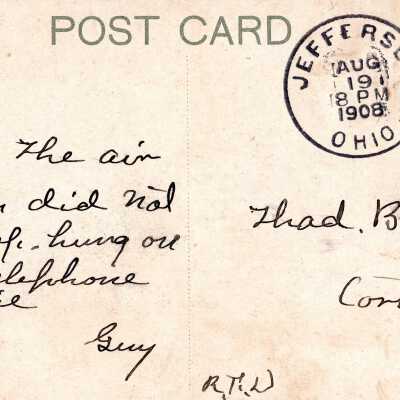 POST CARD
JEFFERSE
AUG
19
8 PM
1908
OHIO
The air
did not
hung on
elephone
Guy
Thad. B
Con
R.F.D